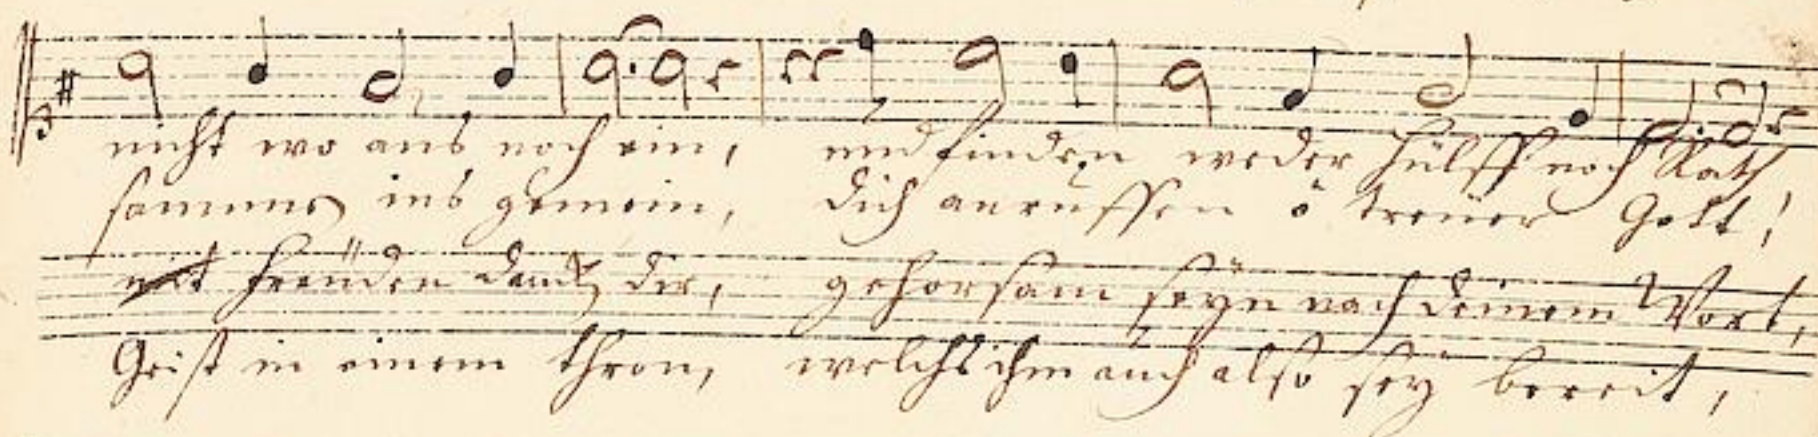 nicht wo aus noch ein, und finden weder hülff noch Rath
sammen ins gemein, dich anruffen ô treuer Gott!
mit freüden danck dir, gehorsam seyn nach deinem Wort,
Geist in einem thron, welchs ihm auch also seÿ bereit,